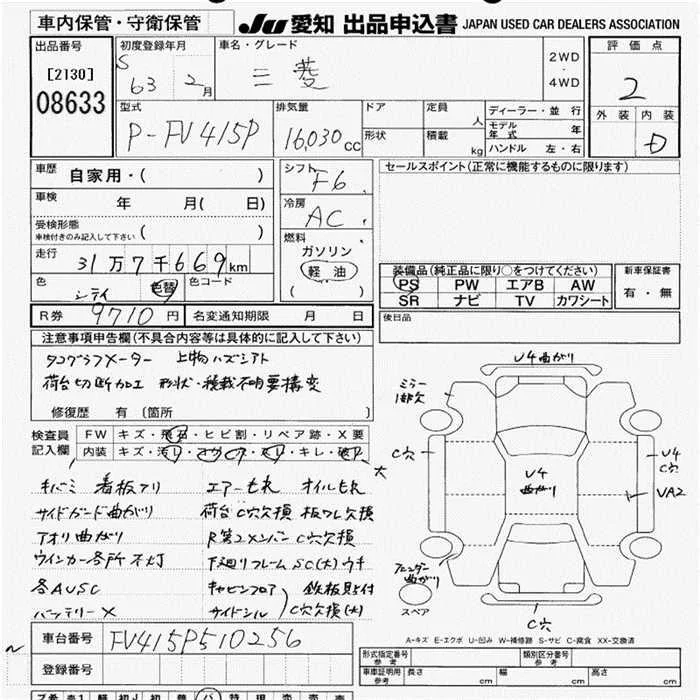 車内保管・守衛保管
JU 愛知 出品申込書 JAPAN USED CAR DEALERS ASSOCIATION
出品番号
[2130]
08633
初度登録年月
S
63 2月
車名・グレード
三菱
2WD
・
4WD
評価点
2
外装 内装
D
型式
P-FV415P
排気量
16,030cc
ドア
形状
定員
人
積載
kg
ディーラー・並行
モデル年式 年
ハンドル 左・右
車歴
自家用・( )
車検 年 月( 日)
受検形態
車検付きのみ記入して下さい ( )
走行
31万7千669km
色
シティ 色替 色コード
シフト
F6
冷房
AC
燃料
ガソリン
軽油
( )
セールスポイント(正常に機能するものに限ります)
装備品(純正品に限り○をつけてください)
PS PW エアB AW
SR ナビ TV カワシート
新車保証書
有・無
後日品
R券 9710円 名変通知期限 月 日
注意事項申告欄(不具合内容等は具体的に記入して下さい)
タコグラフメーター 上物ハズシアト
荷台切断加工 形状・積載不明要構変
修復歴 有(箇所 )
検査員
記入欄
FW キズ・飛石・ヒビ割・リペア跡・X要
内装 キズ・汚レ・コゲ・穴・スレ・キレ・破レ
大
キバミ 看板アリ エアーもれ オイルもれ
サイドガード曲がり 荷台C穴欠損 板ワレ欠損
アオリ曲がり R第2メンバーC穴欠損
ウインカー各所不灯 下廻りフレームSC(大)ウキ
各AUSC キャビンフロア 鉄板貼付
バッテリーX サイドシル C穴欠損(大)
U4曲がり
ミラー
1部欠
C穴
U4
曲がり
U4
C穴
VA2
フェンダー
曲がり
スペア
C穴
A-キズ E-エクボ U-凹み W-補修跡 S-サビ C-腐食 XX-交換済
車台番号 FV415P510256
登録番号
形式指定番号
参考
類別区分番号
参考
車庫証明
参考
長さ cm 幅 cm 高さ cm